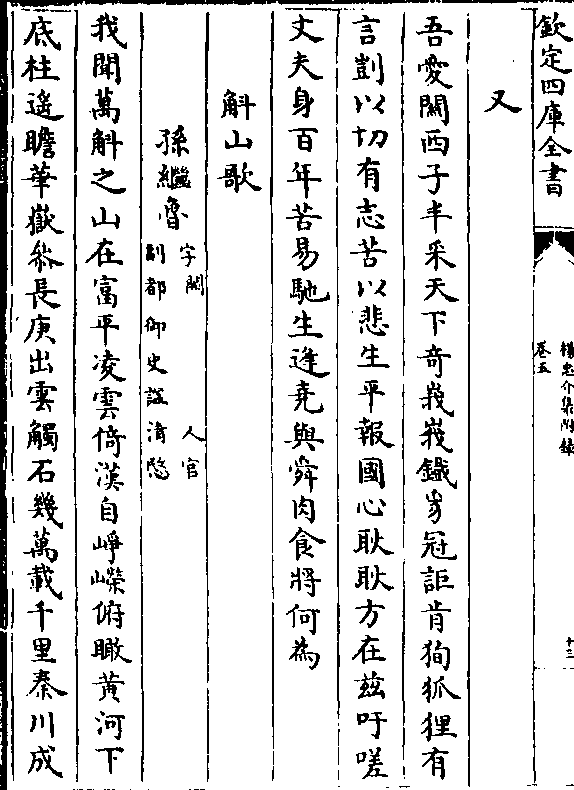 欽定四庫全書
楊忠介集附錄
卷五
十三
又
吾愛關西子丰采天下奇峩峩鐵豸冠詎肯狥狐狸有
言剴以切有志苦以悲生平報國心耿耿方在兹吁嗟
丈夫身百年苦易馳生逢堯與舜肉食將何為
斛山歌
孫繼魯
字闕 人官
副都御史諡清愍
我聞萬斛之山在富平凌雲倚漢自崢嶸俯瞰黄河下
底柱遙瞻華嶽叅長庚出雲觸石幾萬載千里秦川成